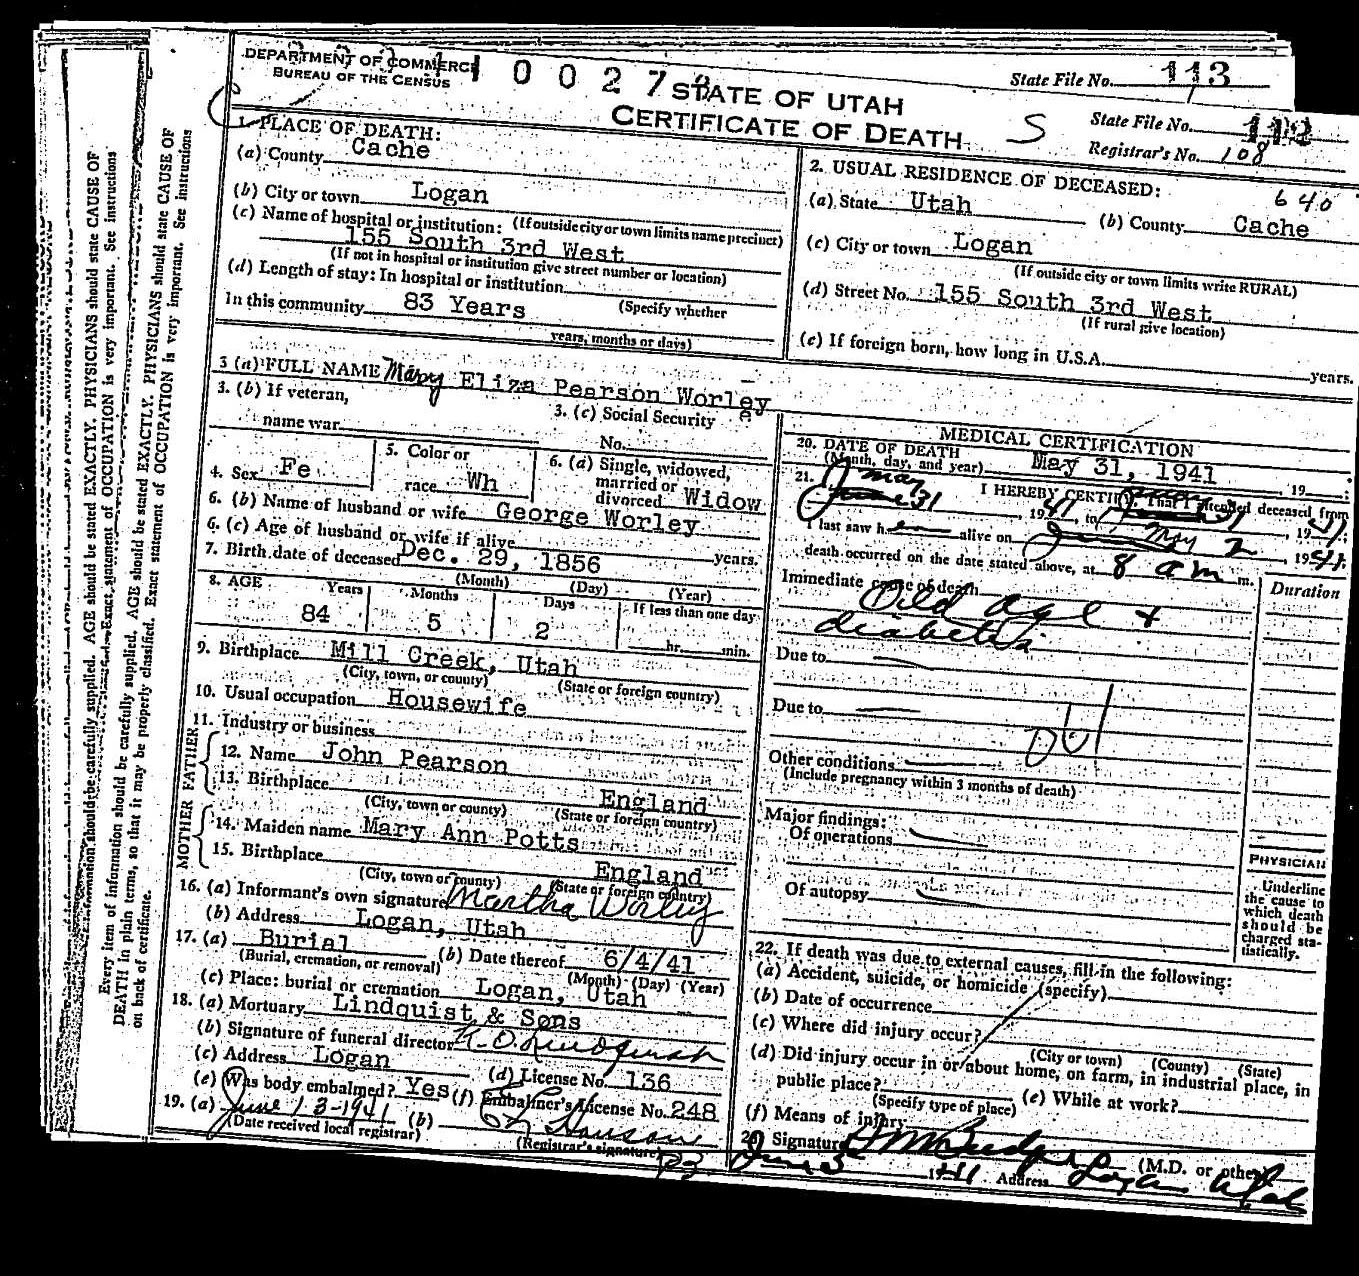 DEPARTMENT OF COMMERCE
BUREAU OF THE CENSUS
0 0 2 7
STATE OF UTAH
CERTIFICATE OF DEATH
S
State File No. 113
State File No.
Registrar's No. 108
1. PLACE OF DEATH:
(a) County Cache
(b) City or town Logan
(c) Name of hospital or institution: (If outside city or town limits name precinct)
155 South 3rd West
(If not in hospital or institution give street number or location)
(d) Length of stay: In hospital or institution
In this community 83 Years (Specify whether
years, months or days)
2. USUAL RESIDENCE OF DECEASED:
640
(a) State Utah (b) County Cache
(c) City or town Logan
(If outside city or town limits write RURAL)
(d) Street No. 155 South 3rd West
(If rural give location)
(e) If foreign born, how long in U.S.A. years.
3 (a) FULL NAME Mary Eliza Pearson Worley
3. (b) If veteran,
name war
3. (c) Social Security
No.
4. Sex Fe
5. Color or
race Wh
6. (a) Single, widowed,
married or
divorced Widow
6. (b) Name of husband or wife George Worley
6. (c) Age of husband or wife if alive years.
7. Birth date of deceased Dec. 29, 1856
(Month) (Day) (Year)
8. AGE Years Months Days If less than one day
84 5 2 hr. min.
9. Birthplace Mill Creek, Utah
(City, town, or county) (State or foreign country)
10. Usual occupation Housewife
11. Industry or business
FATHER
12. Name John Pearson
13. Birthplace England
(City, town or county) (State or foreign country)
MOTHER
14. Maiden name Mary Ann Potts
15. Birthplace England
(City, town or county) (State or foreign country)
16. (a) Informant's own signature Martha Worley
(b) Address Logan, Utah
17. (a) Burial (b) Date thereof 6/4/41
(Burial, cremation, or removal) (Month) (Day) (Year)
(c) Place: burial or cremation Logan, Utah
18. (a) Mortuary Lindquist & Sons
(b) Signature of funeral director
(c) Address Logan (d) License No. 136
(e) Was body embalmed? Yes (f) Embalmer's License No. 248
19. (a) June 13-1941 (b)
(Date received local registrar) (Registrar's signature)
MEDICAL CERTIFICATION
20. DATE OF DEATH
(Month, day, and year) May 31, 1941 19
21. I HEREBY CERTIFY that I attended deceased from
May
31 1941, to 31 1941
I last saw her alive on May 2 1941
death occurred on the date stated above, at 8 am m.
Immediate cause of death Duration
Old age +
diabetis
Due to
Due to
Other conditions
(Include pregnancy within 3 months of death)
Major findings:
Of operations
Of autopsy
PHYSICIAN
Underline
the cause to
which death
should be
charged sta-
tistically.
22. If death was due to external causes, fill in the following:
(a) Accident, suicide, or homicide (specify)
(b) Date of occurrence
(c) Where did injury occur?
(City or town) (County) (State)
(d) Did injury occur in or about home, on farm, in industrial place, in
public place? (e) While at work?
(Specify type of place)
(f) Means of injury
23. Signature (M.D. or other)
June 3 1941 Address Logan Utah
Every item of information should be carefully supplied. AGE should be stated EXACTLY. PHYSICIANS should state CAUSE OF
DEATH in plain terms, so that it may be properly classified. Exact statement of OCCUPATION is very important. See instructions
on back of certificate.